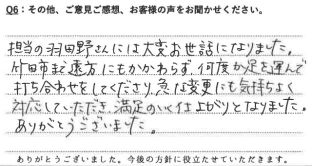 Q6：その他、ご意見ご感想、お客様の声をお聞かせください。
担当の羽田野さんには大変お世話になりました。
竹田市まで遠方にもかかわらず、何度か足を運んで
打ち合わせをしてくださり、急な変更にも気持ちよく
対応していただき、満足のいく仕上がりとなりました。
ありがとうございました。
ありがとうございました。今後の方針に役立たせていただきます。